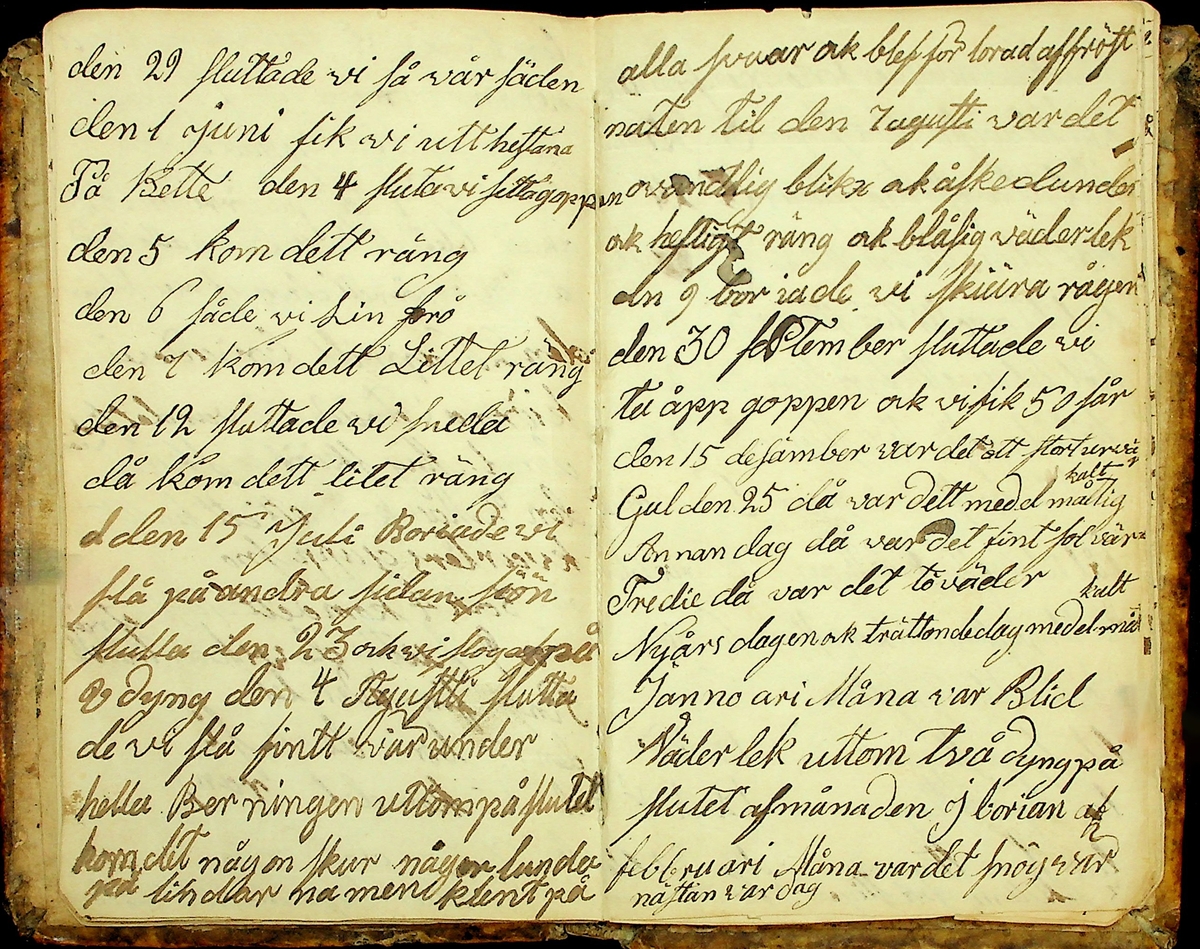 den 29 sluttade vi så vår säden
den 1 Juni fik vi utt hestana
På Bette den 4 sluta vi sätta goppen
den 5 kom dett räng
den 6 såde vi Lin frö
den 7 kom dett Littet räng
den 12 sluttade vi sveda
då kom dett litet räng
d den 15 Juli Boriade vi
slå på andra sidan siön
slutta den 23 ok vi slog på
8 dyng den 4 Agusti slutta
de vi slå fintt vär under
hella Berningen uttom på slutet
kom det någon skur någer lunda
på lindar na men klent på
alla svaar ok blef för lorad af fröst
naten til den 7 agusti var det
ovandlig blikx ok åskedunder
ok heftigt räng ok blåsig väderlek
an 9 bor iade vi skiära rågen
den 30 sepTember sluttade vi
ta åpp goppen ok vi fik 50 sår
den 15 desämber var det ett stort urvär
Gul den 25 då var dett medelmåtlig kalt
Annan dag då var det fint sol vär
Tredie då var det töväder
Nyårs dagen ok trättonde dag medelmå kalt
Janno ari Måna var Blid
Väder lek uttom två dyng på
slutet af månaden i börian af
februari Måna var det snög vär
nästan var dag